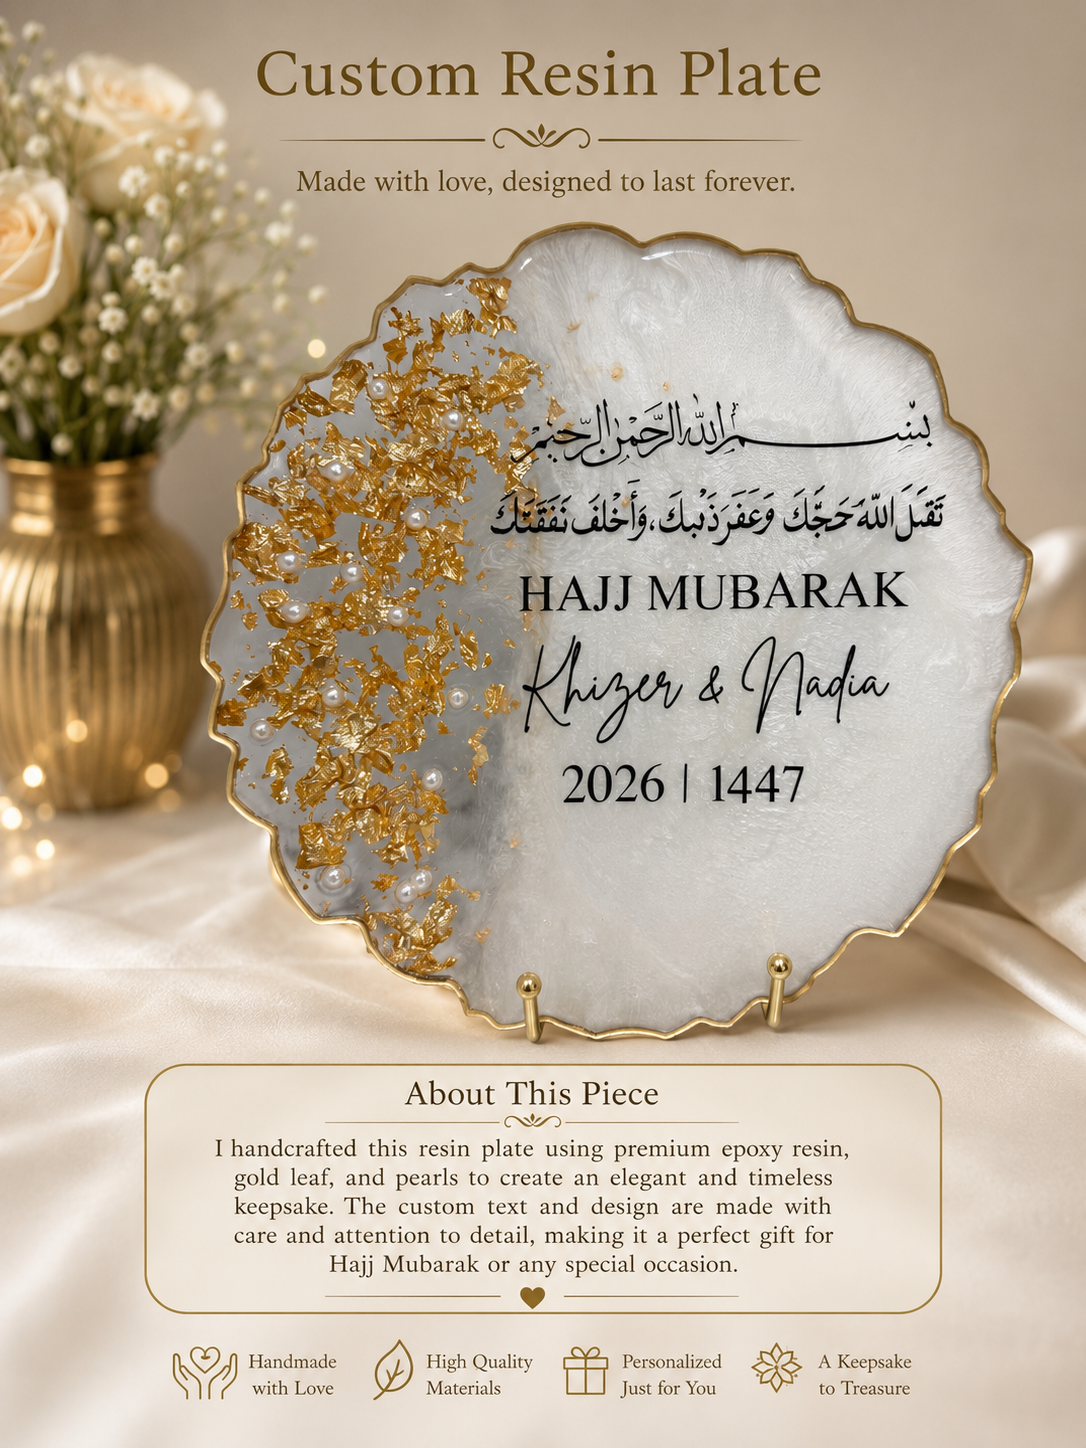 Custom Resin Plate
Made with love, designed to last forever.
بِسْمِ اللهِ الرَّحْمٰنِ الرَّحِيْمِ
تَقَبَلَ اللّٰهُ حَجَّكَ وَعَفَرَ ذَنْبِكَ، وَأَخْلَفَ نَفَقَتَكَ
HAJJ MUBARAK
Khizer & Nadia
2026 | 1447
About This Piece
I handcrafted this resin plate using premium epoxy resin,
gold leaf, and pearls to create an elegant and timeless
keepsake. The custom text and design are made with
care and attention to detail, making it a perfect gift for
Hajj Mubarak or any special occasion.
Handmade
with Love
High Quality
Materials
Personalized
Just for You
A Keepsake
to Treasure